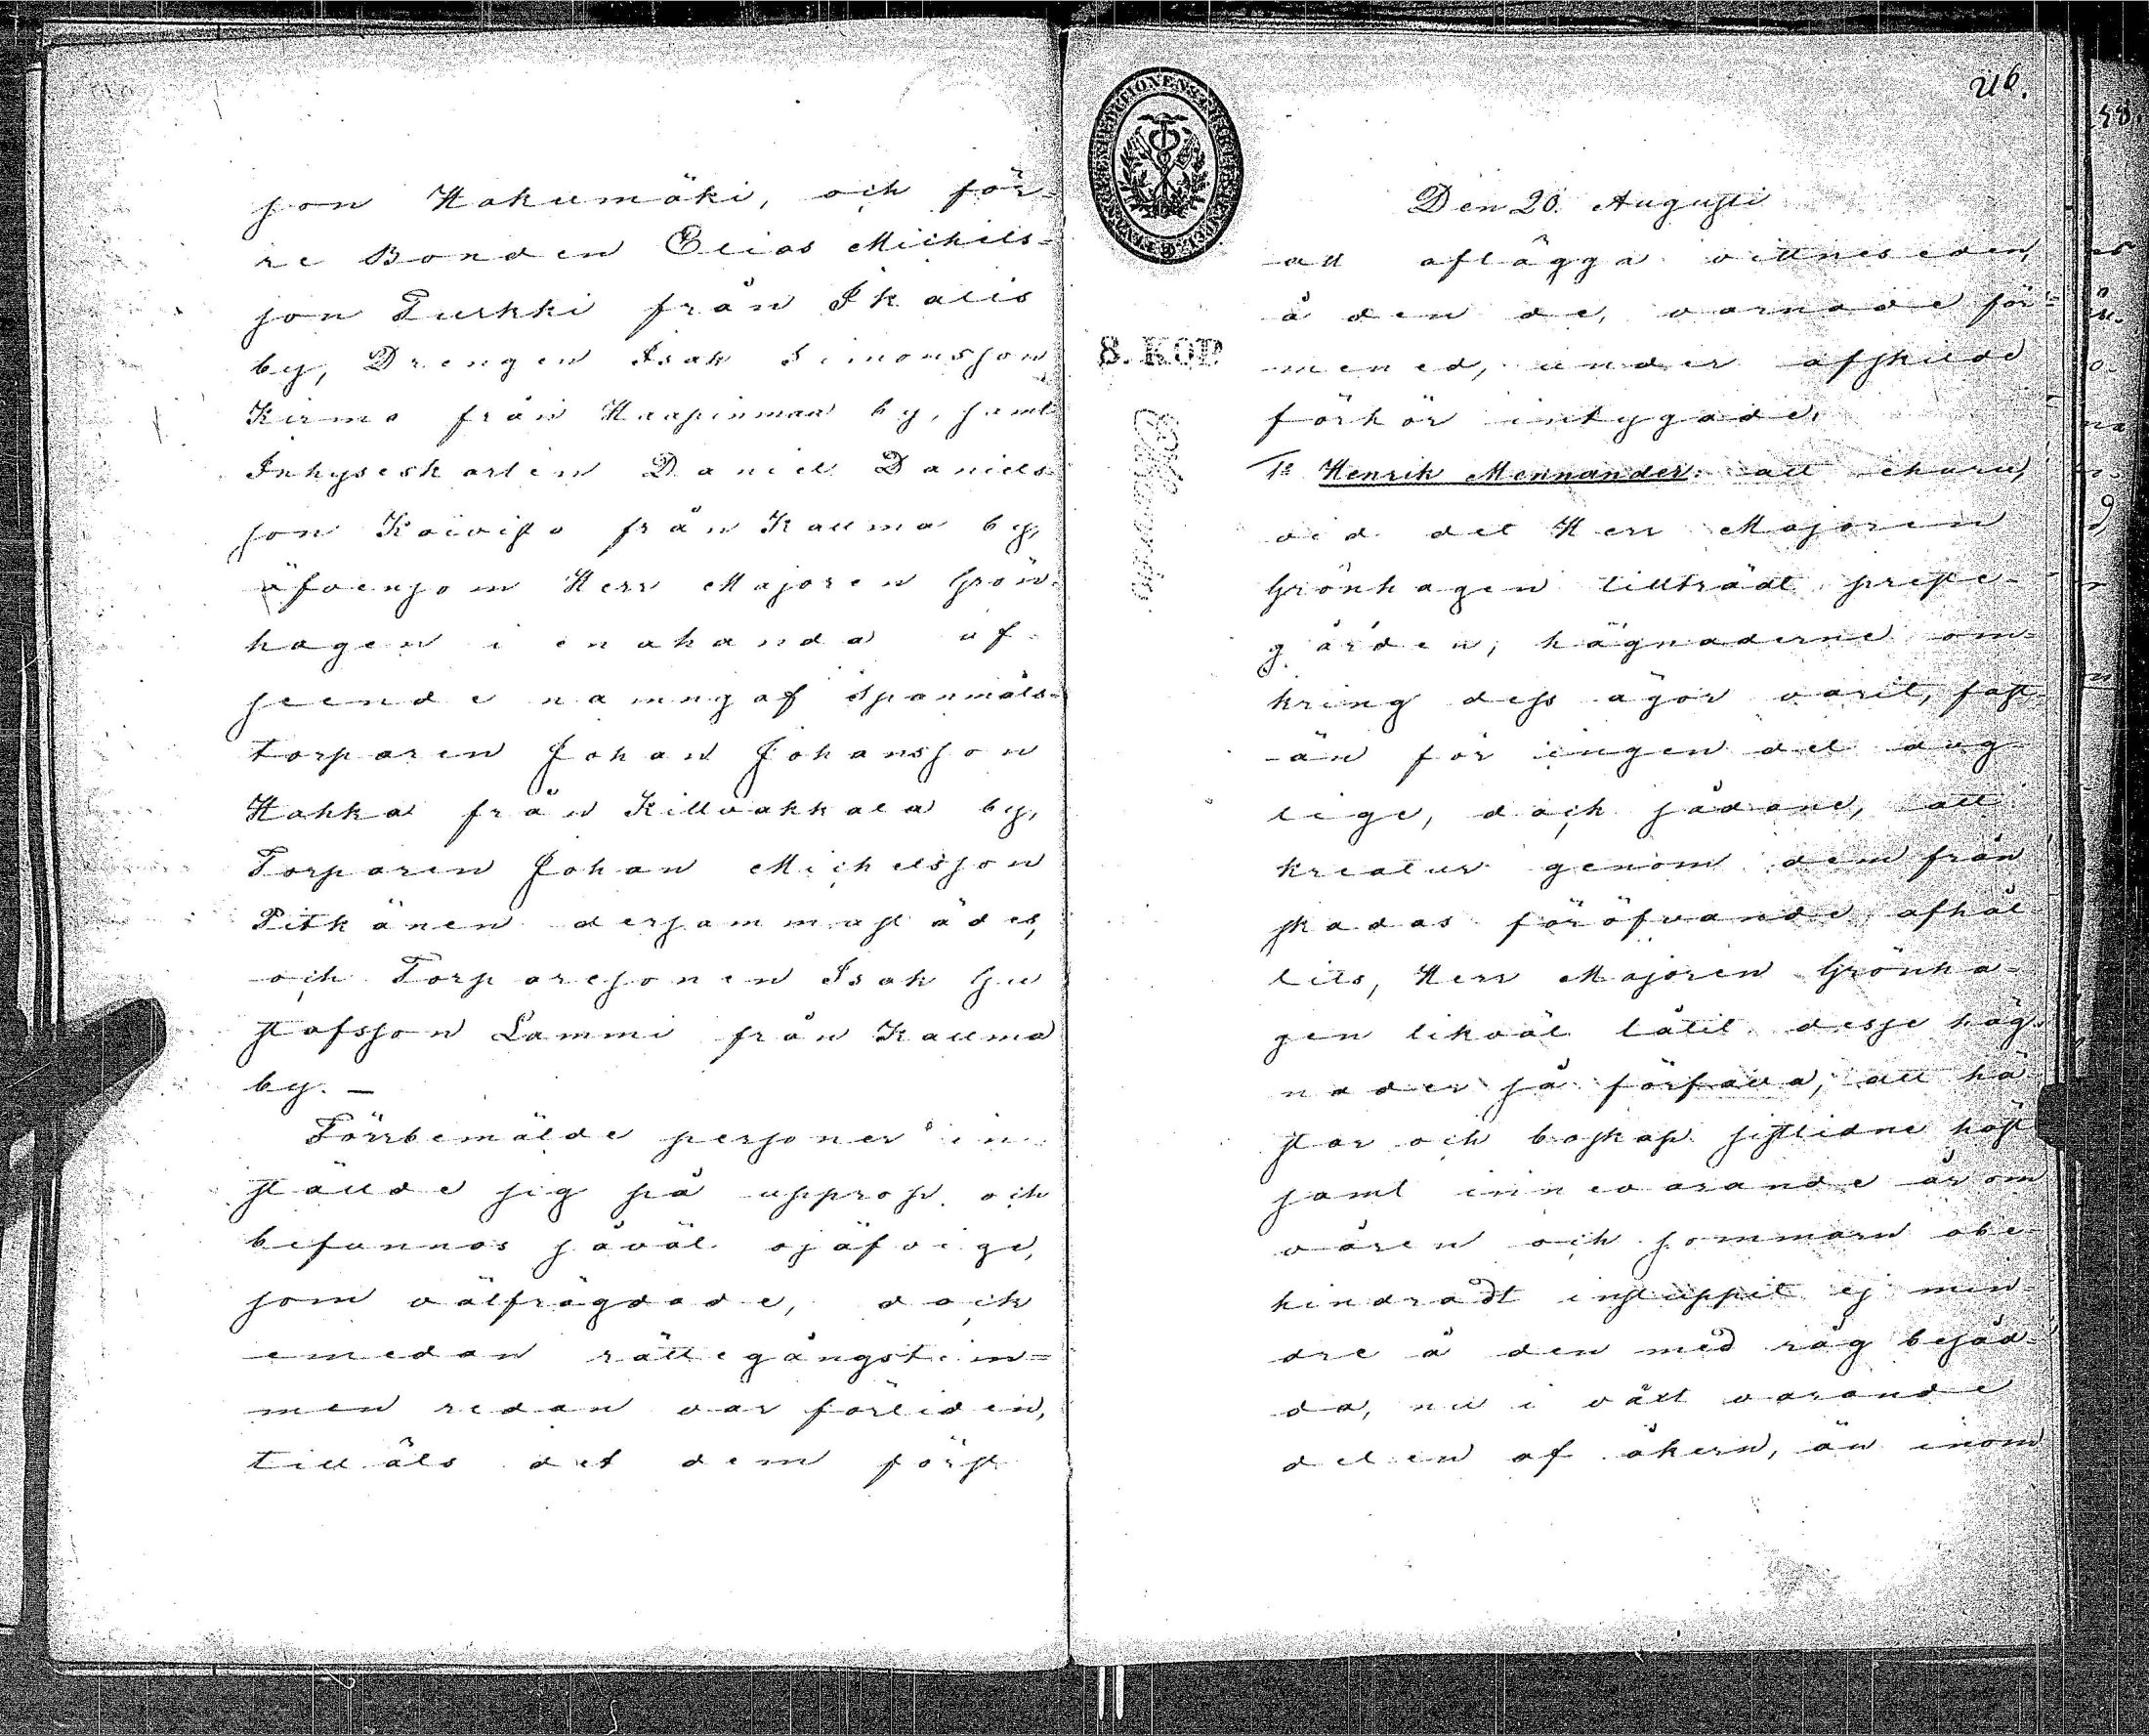 son Hakumäki, och för-
re Bonden Elias Michels-
son Turkki från Ikalis
by, Drengen Isak Simonsson
Kirmo från Haapinmaa by, samt
Inhyseskarlen Daniel Daniels-
son Koivisto från Kallma by,
äfvensom Herr Majoren Grön-
hagen i enahanda af-
seende namng af Spanmåls-
torparen Johan Johansson
Hakka från Killvakkala by,
Torparen Johan Michelsson
Pitkänen dersammastädes,
och Torparesonen Isak Gu
stafsson Lammi från Kallma
by. —
Förrbemälde personer in-
stälde sig på upprop och
befunnos såväl ojäfvige,
som välfrägdade, dock
emedan rättegångstim=
men redan var förliden,
tilläts det dem först
216.
Den 20. Augusti
att aflägga vittneseden,
å den de, varnade för
mened, under afskildt
förhör intygade.
1º Henrik Mennander: att ehuru,
vid det Herr Majoren
Grönhagen tillträdt preste-
gården, hägnaderne om-
kring dess ägor varit, fast-
än för ingen del dug-
lige, dock sådane, att
kreatur genom dem från
skadas föröfvande afhål-
lits, Herr Majoren Grönha-
gen likväl låtit desse häg-
nader så förfalla, att hä-
star och boskap sistlidne höst
samt innevarande år om
våren och sommarn obe-
hindradt insluppit ej min-
dre å den med råg besåd-
da, nu i vält varande
delen af åkern, än inom
8. KOP.